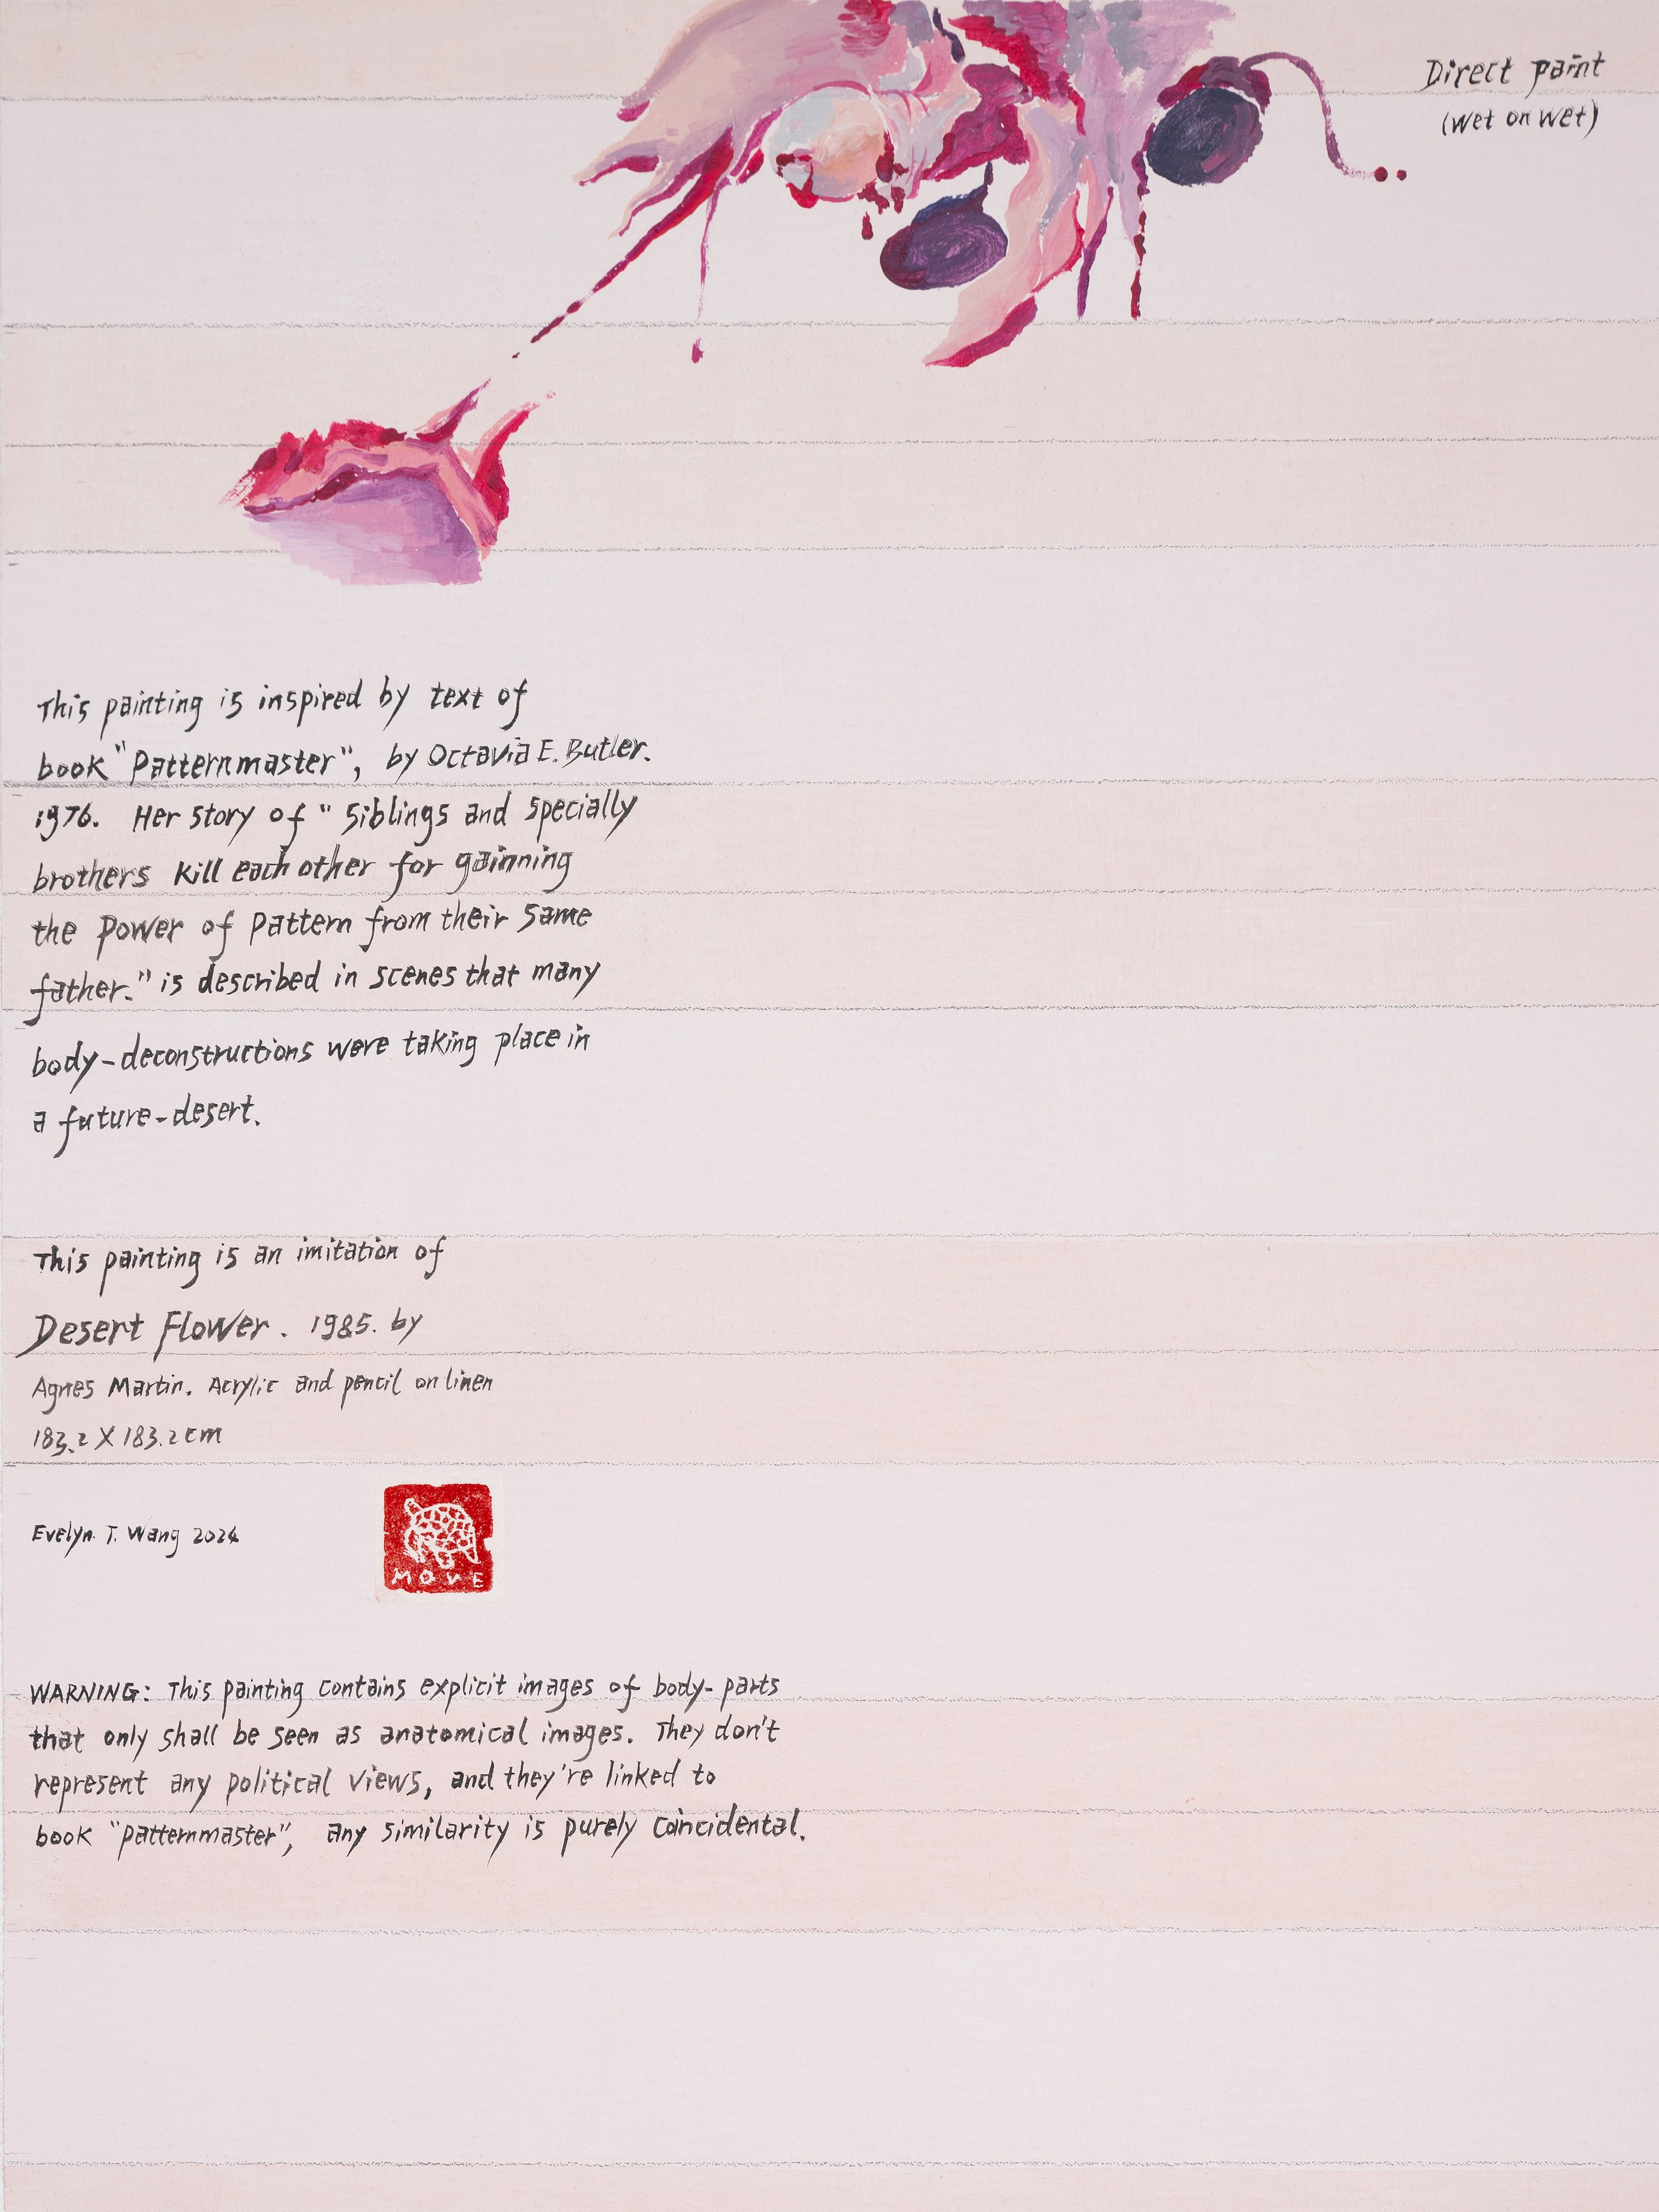 Direct paint
(wet on wet)
This painting is inspired by text of
book "Patternmaster", by Octavia E. Butler.
1976. Her story of "siblings and specially
brothers kill each other for gainning
the power of pattern from their same
father." is described in scenes that many
body-deconstructions were taking place in
a future-desert.
This painting is an imitation of
Desert Flower. 1985. by
Agnes Martin. Acrylic and pencil on linen
183.2 X 183.2 cm
Evelyn T. Wang 2024
MOVE
WARNING: This painting contains explicit images of body-parts
that only shall be seen as anatomical images. They don't
represent any political views, and they're linked to
book "patternmaster", any similarity is purely coincidental.